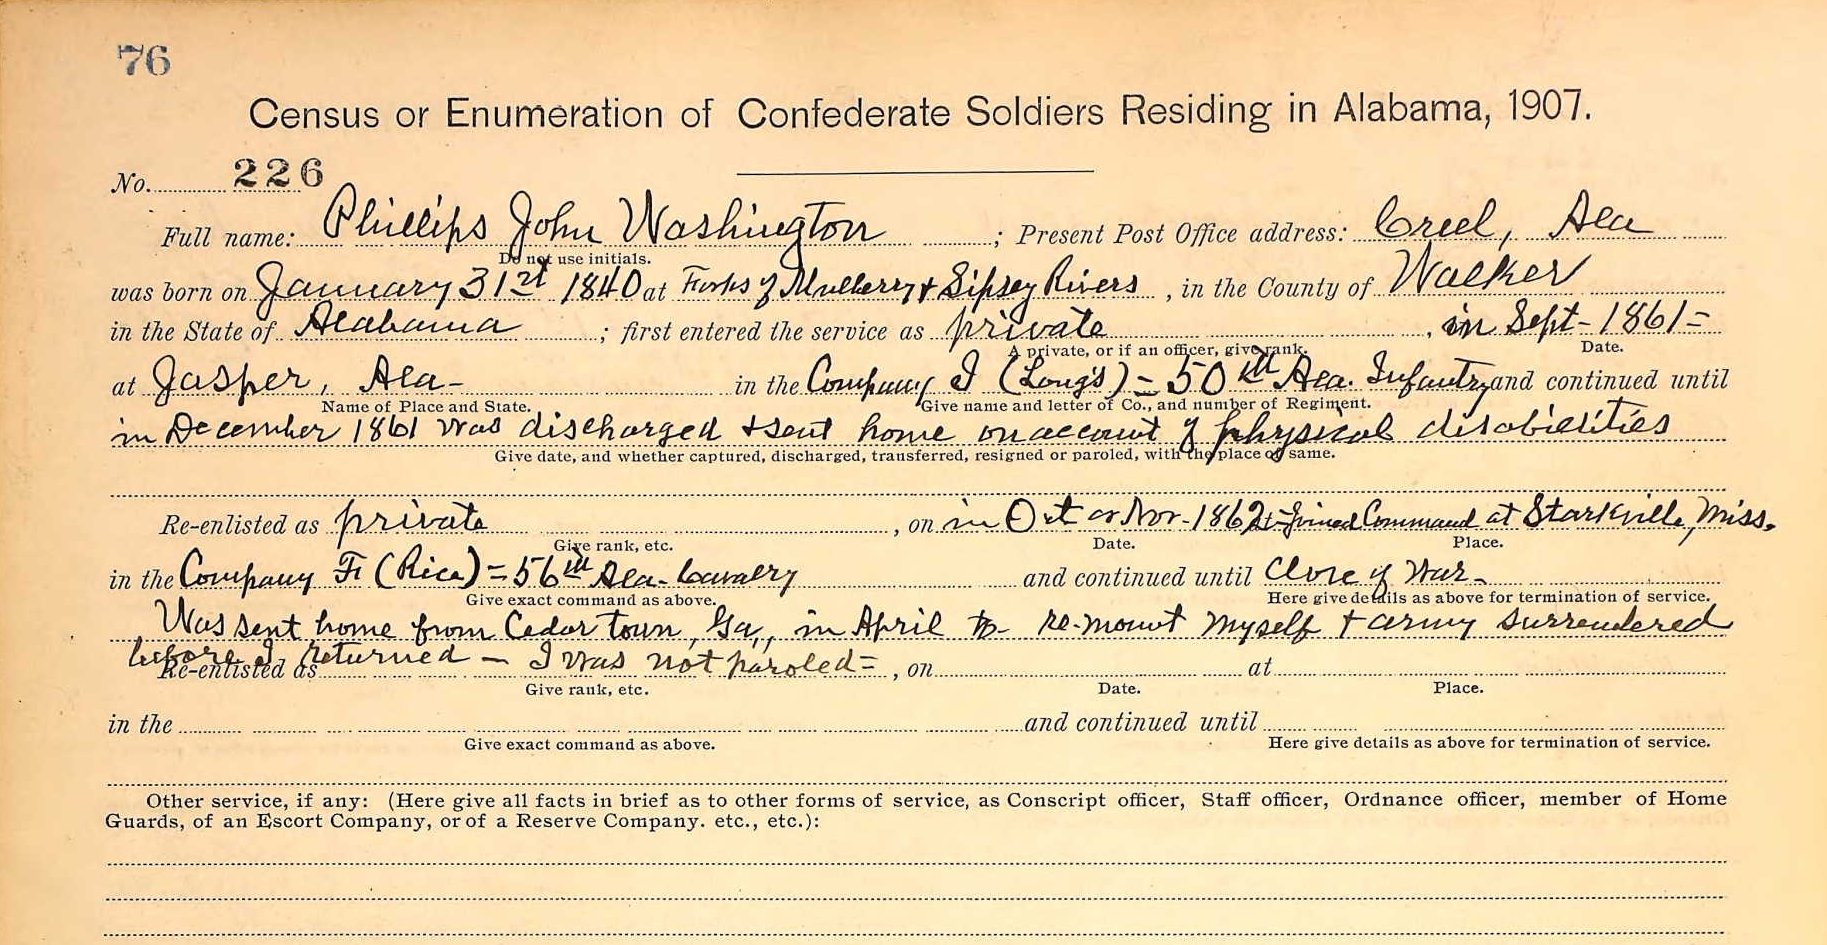 76
Census or Enumeration of Confederate Soldiers Residing in Alabama, 1907.
No. 226
Full name: Phillips John Washington ; Present Post Office address: Creel, Ala
Do not use initials.
was born on January 31st 1840 at Forks of Mulberry & Sipsey Rivers , in the County of Walker
in the State of Alabama ; first entered the service as private , in Sept - 1861 =
A private, or if an officer, give rank. Date.
at Jasper, Ala - in the Company I (Long's) = 50th Ala. Infantry and continued until
Name of Place and State. Give name and letter of Co., and number of Regiment.
in December 1861 was discharged & sent home on account of physical disabilities
Give date, and whether captured, discharged, transferred, resigned or paroled, with the place of same.
Re-enlisted as private , on in Oct or Nov - 1862 at Joined Command at Starkville, Miss.
Give rank, etc. Date. Place.
in the Company F (Rice) = 56th Ala - Cavalry and continued until Close of War -
Give exact command as above. Here give details as above for termination of service.
Was sent home from Cedar town, Ga,, in April to - re-mount myself & army surrendered
before I returned - I was not paroled =
Re-enlisted as , on at
Give rank, etc. Date. Place.
in the and continued until
Give exact command as above. Here give details as above for termination of service.
Other service, if any: (Here give all facts in brief as to other forms of service, as Conscript officer, Staff officer, Ordnance officer, member of Home
Guards, of an Escort Company, or of a Reserve Company. etc., etc.):